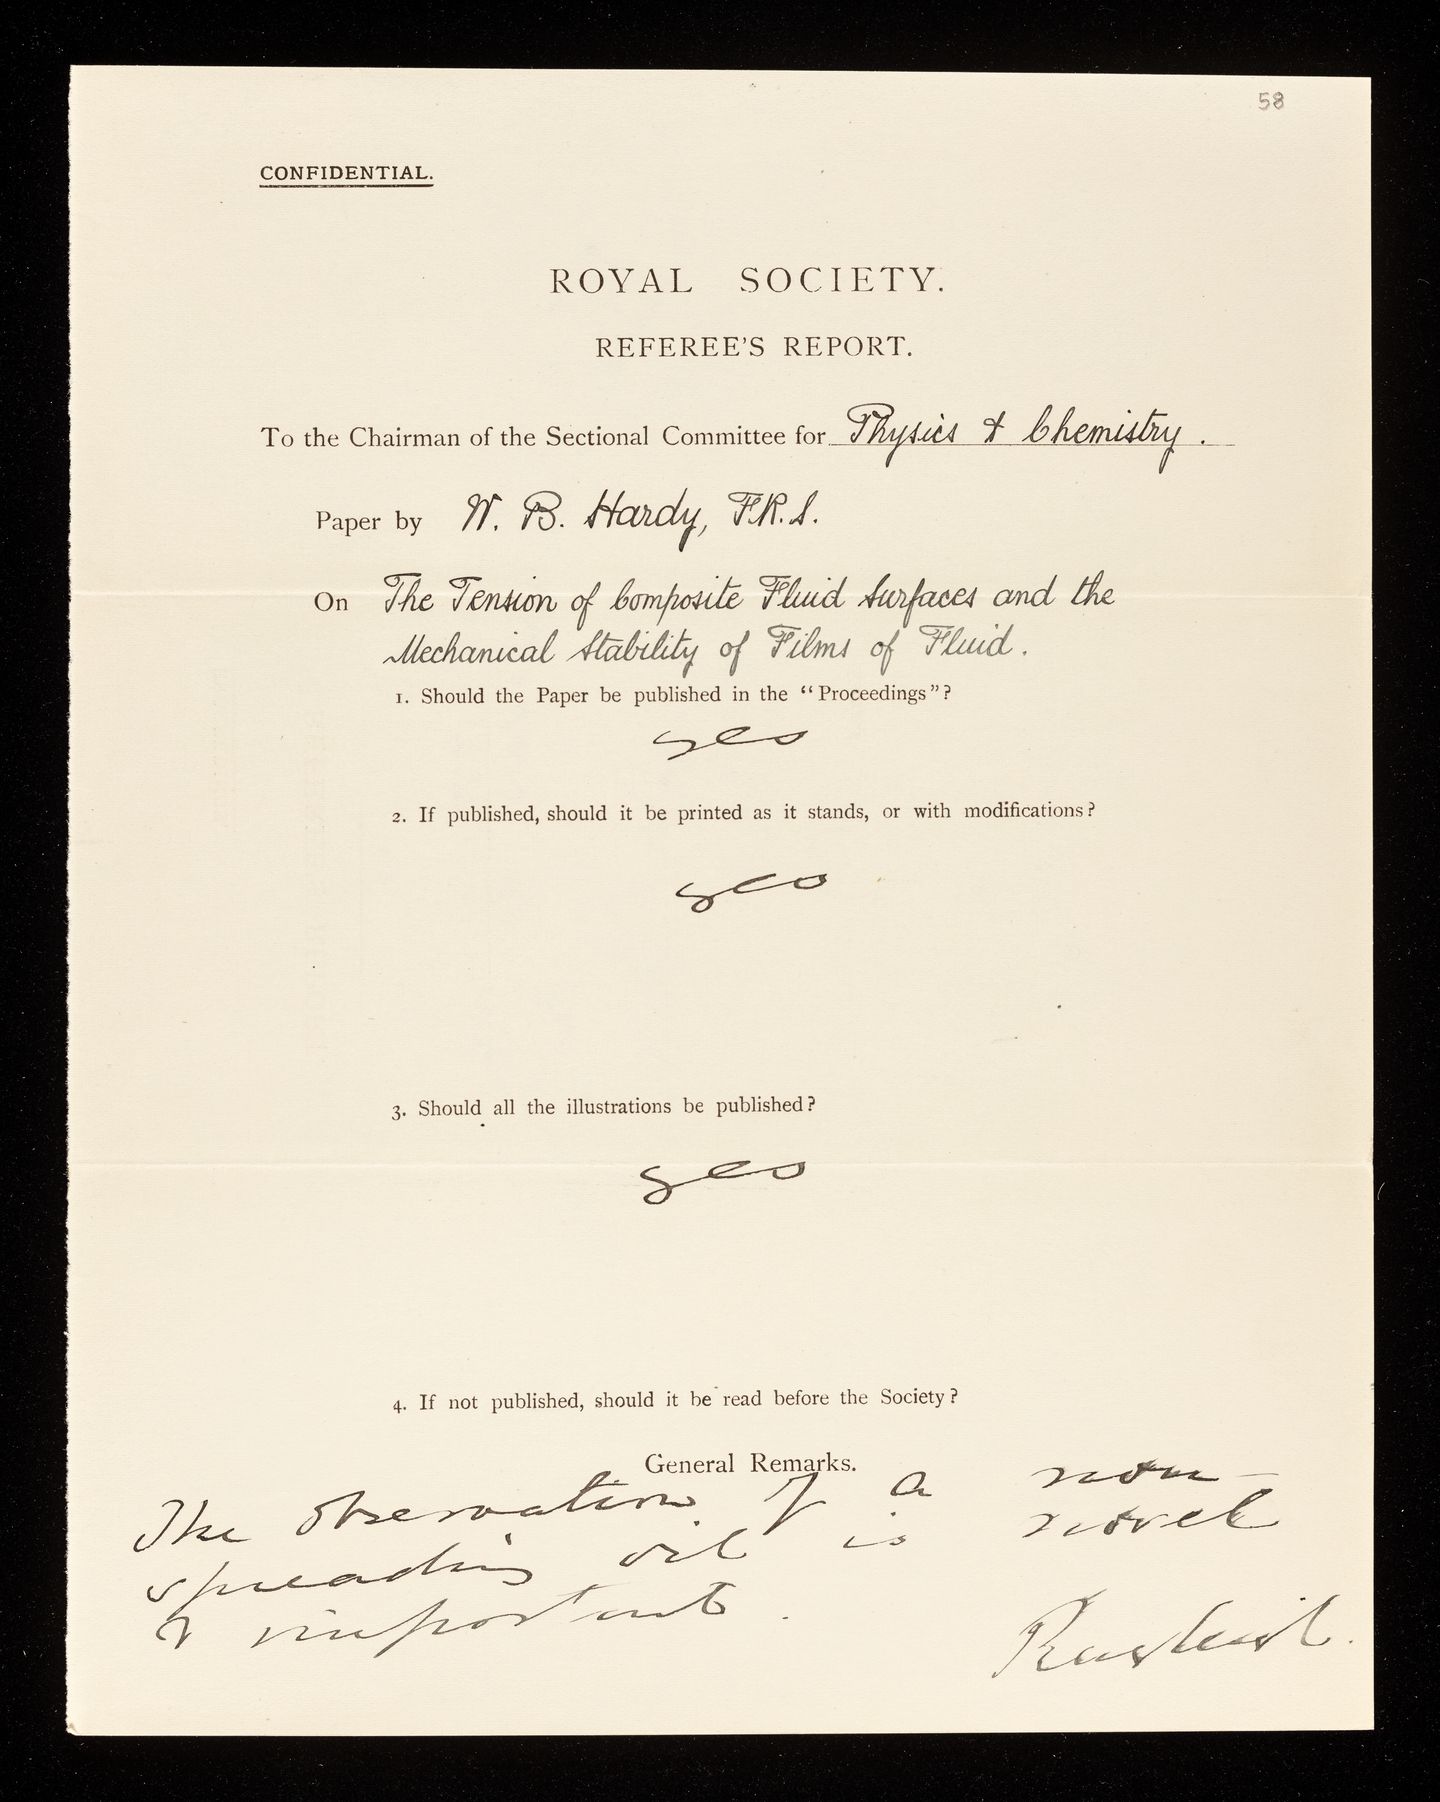 58
CONFIDENTIAL.
ROYAL SOCIETY.
REFEREE'S REPORT.
To the Chairman of the Sectional Committee for Physics & Chemistry.
Paper by W. B. Hardy, F.R.S.
On The Tension of Composite Fluid Surfaces and the
Mechanical Stability of Films of Fluid.
1. Should the Paper be published in the "Proceedings"?
yes
2. If published, should it be printed as it stands, or with modifications?
yes
3. Should all the illustrations be published?
yes
4. If not published, should it be read before the Society?
General Remarks.
The observation of a non-
spreading oil is novel
& important.
Rayleigh.